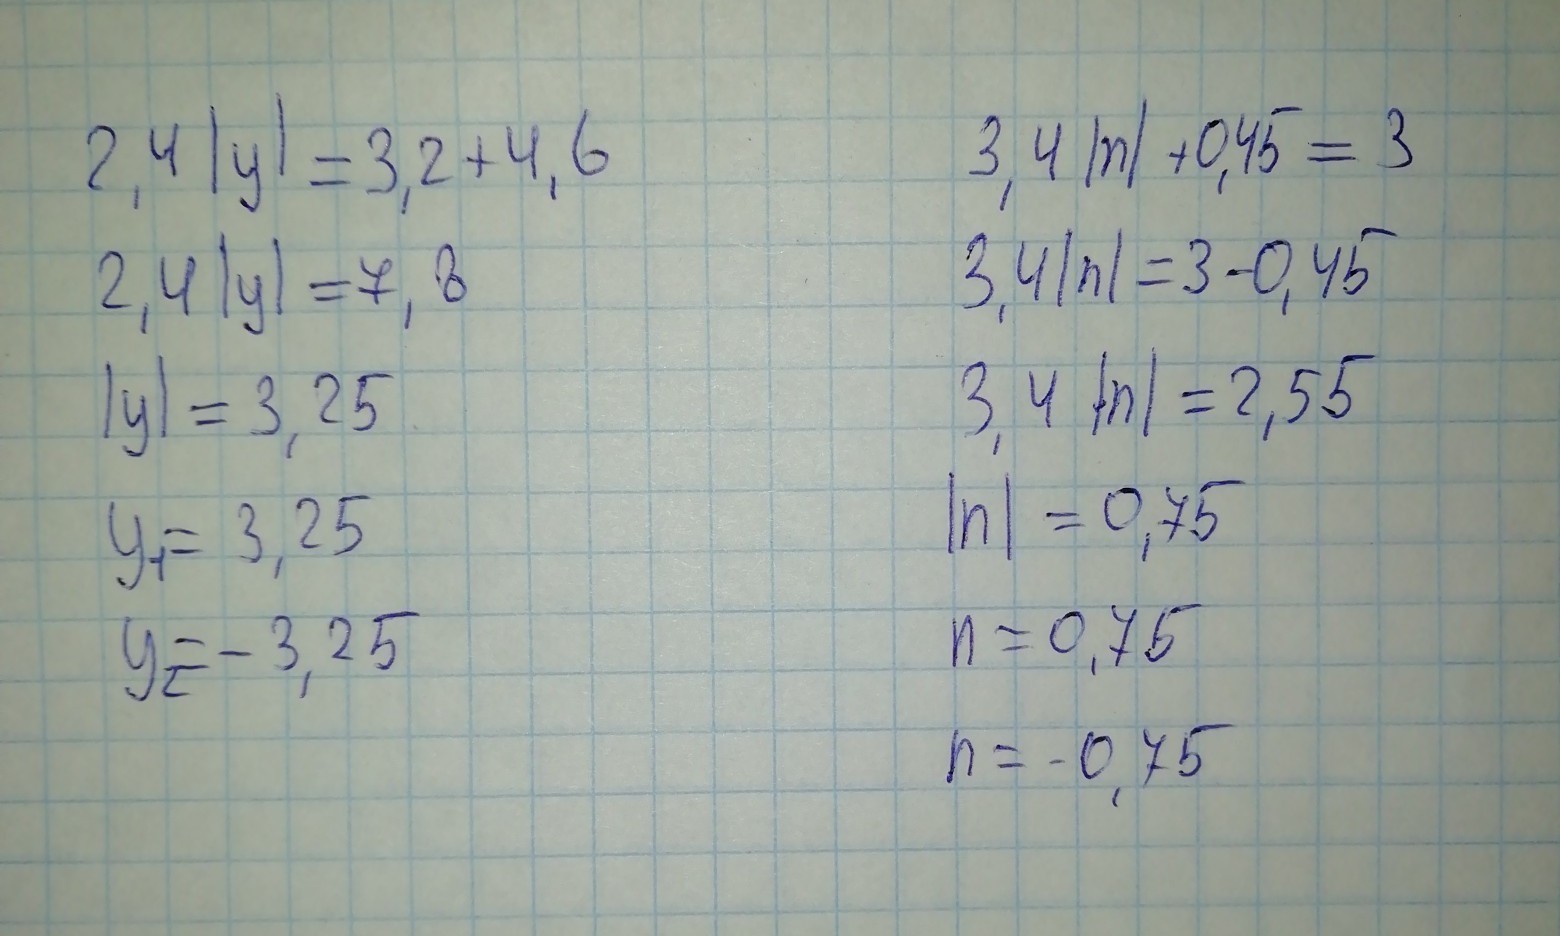 2,4|y|=3,2+4,6
2,4|y|=7,8
|y|=3,25
y₁=3,25
y₂=-3,25
3,4|n|+0,45=3
3,4|n|=3-0,45
3,4|n|=2,55
|n|=0,75
n=0,75
n=-0,75